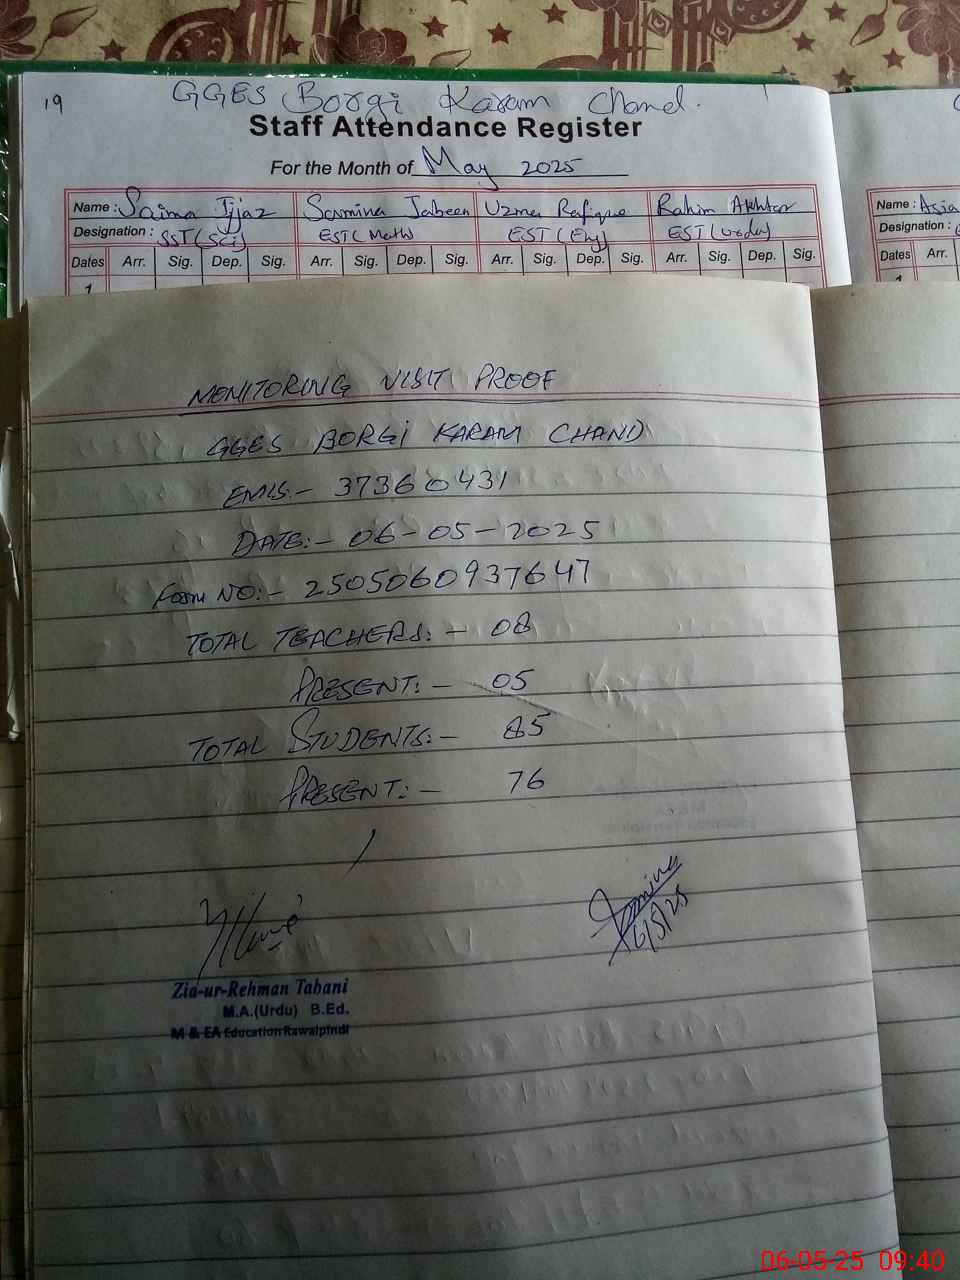 19
GGES Borgi Karam Chand.
Staff Attendance Register
For the Month of May 2025
Name : Saima Ijjaz Samina Jabeen Uzma Rafique Rahim Akhtar
Designation : SST(Sci) EST(Math) EST(Eng) EST(Urdu)
Dates Arr. Sig. Dep. Sig. Arr. Sig. Dep. Sig. Arr. Sig. Dep. Sig. Arr. Sig. Dep. Sig.
1
Name : Asia
Designation :
Dates Arr.
MONITORING VISIT PROOF
GGES BORGi KARAM CHAND
EMIS:- 37360431
DATE:- 06-05-2025
Form NO:- 2505060937647
TOTAL TEACHERS:- 08
PRESENT:- 05
TOTAL STUDENTS:- 85
PRESENT:- 76
Samina
6/5/25
Zia-ur-Rehman Tabani
M.A.(Urdu) B.Ed.
M & EA Education Rawalpindi
06-05-25 09:40